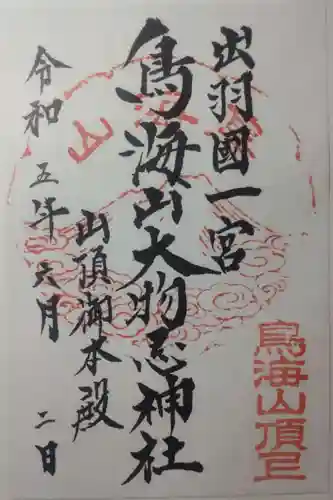 出羽國一宮
鳥海山大物忌神社
山頂御本殿
令和五年六月二日
鳥海山頂印